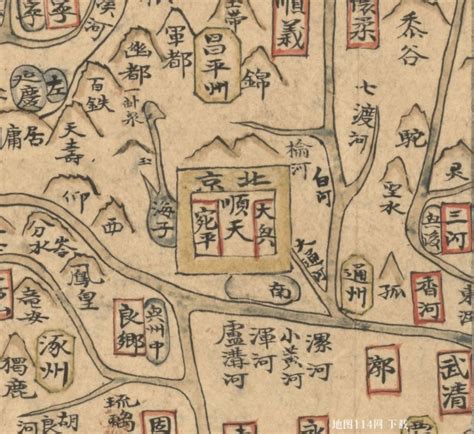 順義
懷柔
黍谷
溪河
軍都
昌平州
幽都
錦
七渡河
百鉄
一卧泉
左
慶
居庸
天壽
玉
榆河
白河
駝
靈
北京
順天
大興
宛平
海子
仰
西
聖水
三河
分水
鳳皇
通州
孤
香河
南
良鄉
涿州
獨鹿
盧溝河
渾河
小黃河
漯河
漷
武清
琉璃
胡良河
固
永
地图114网 下载